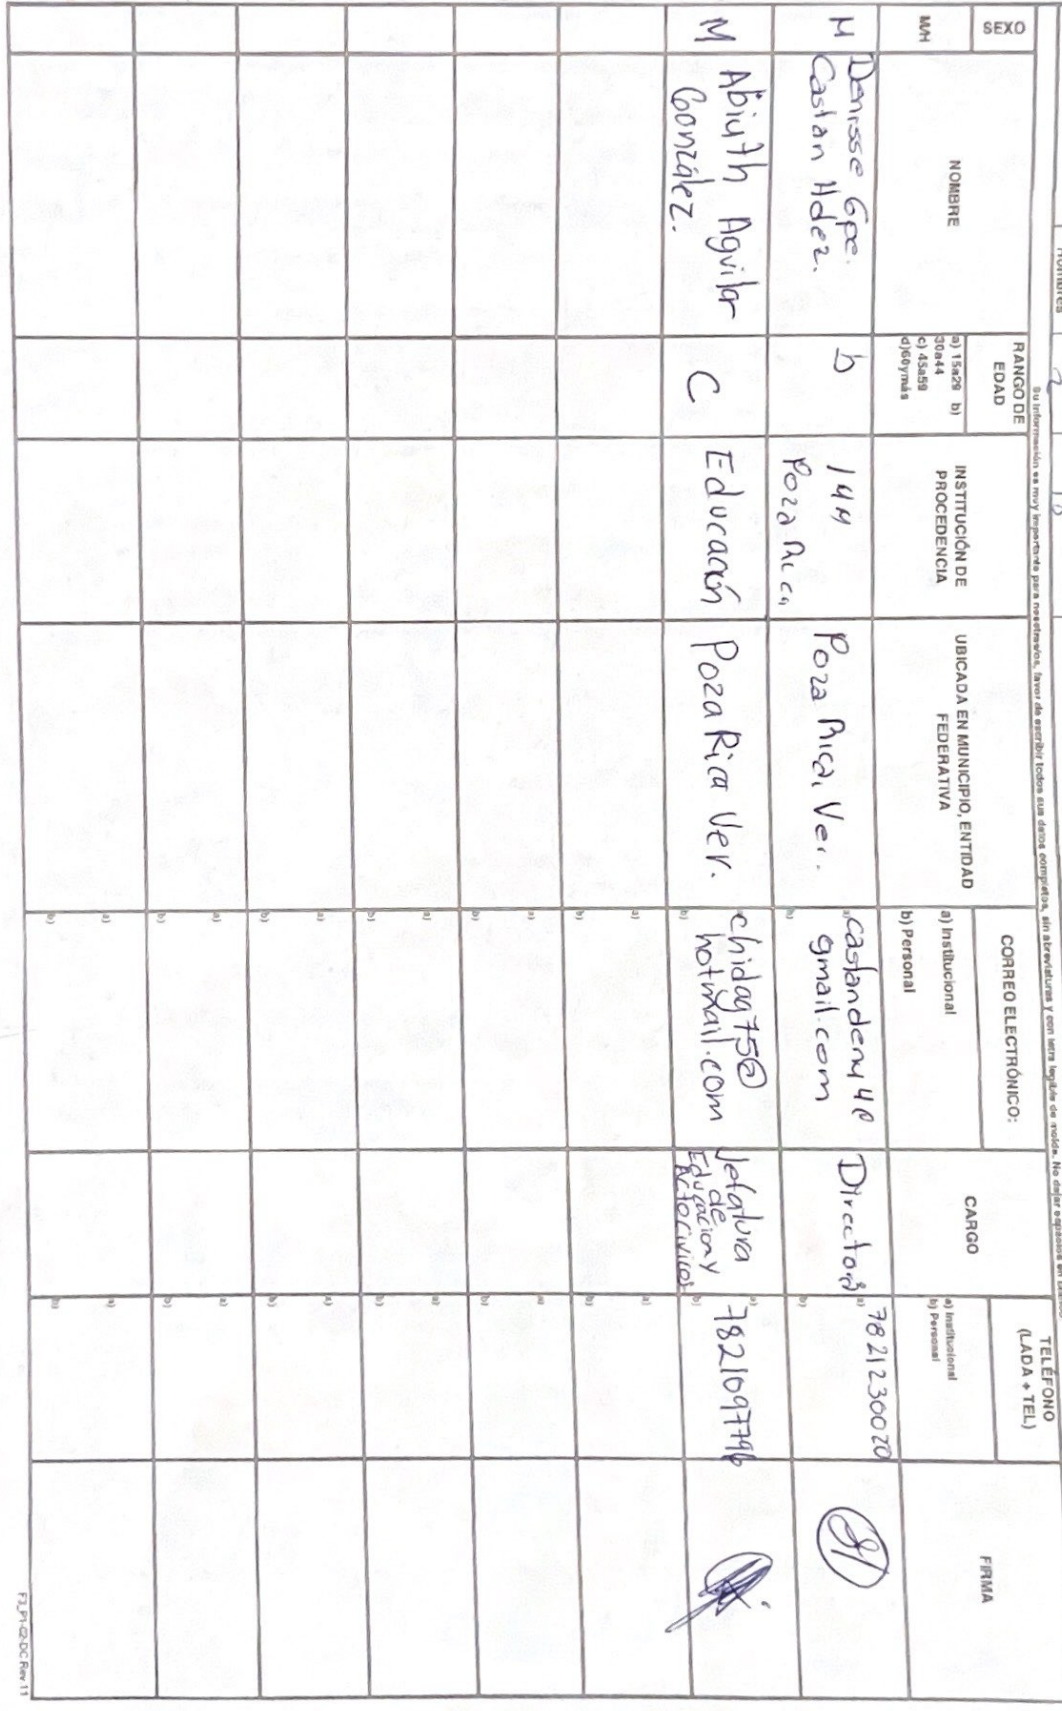 Su información es muy importante para nosotras/os, favor de escribir todos sus datos completos, sin abreviaturas y con letra legible de molde. No dejar espacios en
SEXO
M/H
NOMBRE
RANGO DE
EDAD
a) 15a29 b)
30a44
c) 45a59
d)60ymás
INSTITUCIÓN DE
PROCEDENCIA
UBICADA EN MUNICIPIO, ENTIDAD
FEDERATIVA
CORREO ELECTRÓNICO:
a) Institucional
b) Personal
CARGO
TELÉFONO
(LADA + TEL)
a) Institucional
b) Personal
FIRMA
M
Denisse Gpe.
Castan Hdez.
b
IMM
Poza Rica
Poza Rica, Ver.
a)
castandeny4@
gmail.com
b)
Directora
a) 7821230020
b)
M
Abiuth Aguilar
González.
C
Educación
Poza Rica Ver.
a)
chidag75@
hotmail.com
b)
Jefatura
de
Educación y
Acto Civicos
a)
7821097796
b)
a)
b)
a)
b)
a)
b)
a)
b)
a)
b)
a)
b)
a)
b)
a)
b)
a)
b)
a)
b)
a)
b)
a)
b)
F3_P1-02-DC Rev 11